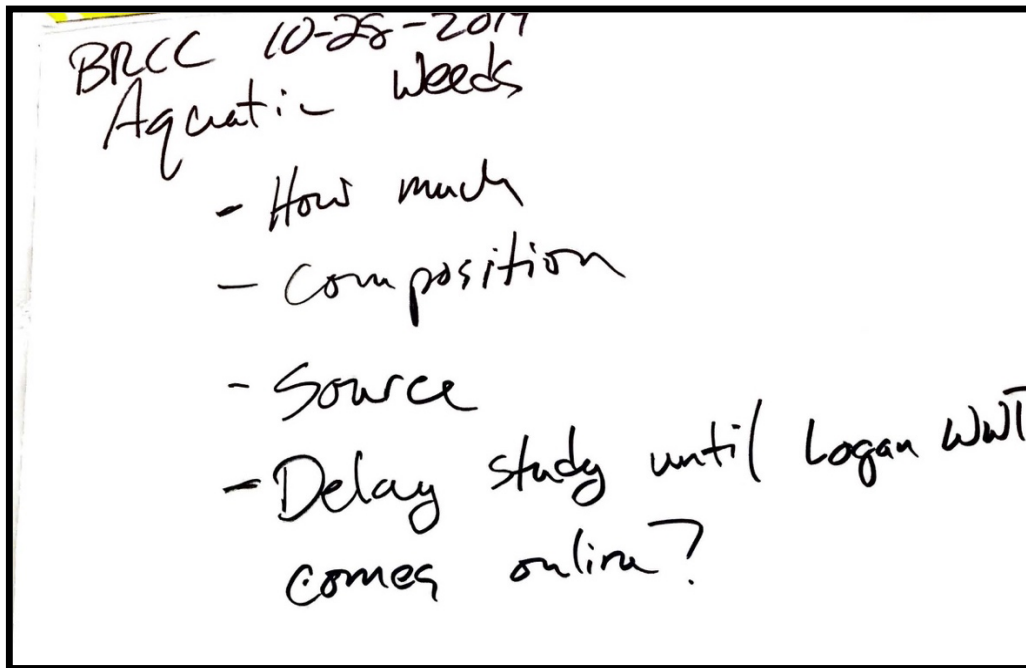 BRCC 10-28-2019
Aquatic Weeds
- How much
- Composition
- Source
- Delay study until Logan WWT
comes online?